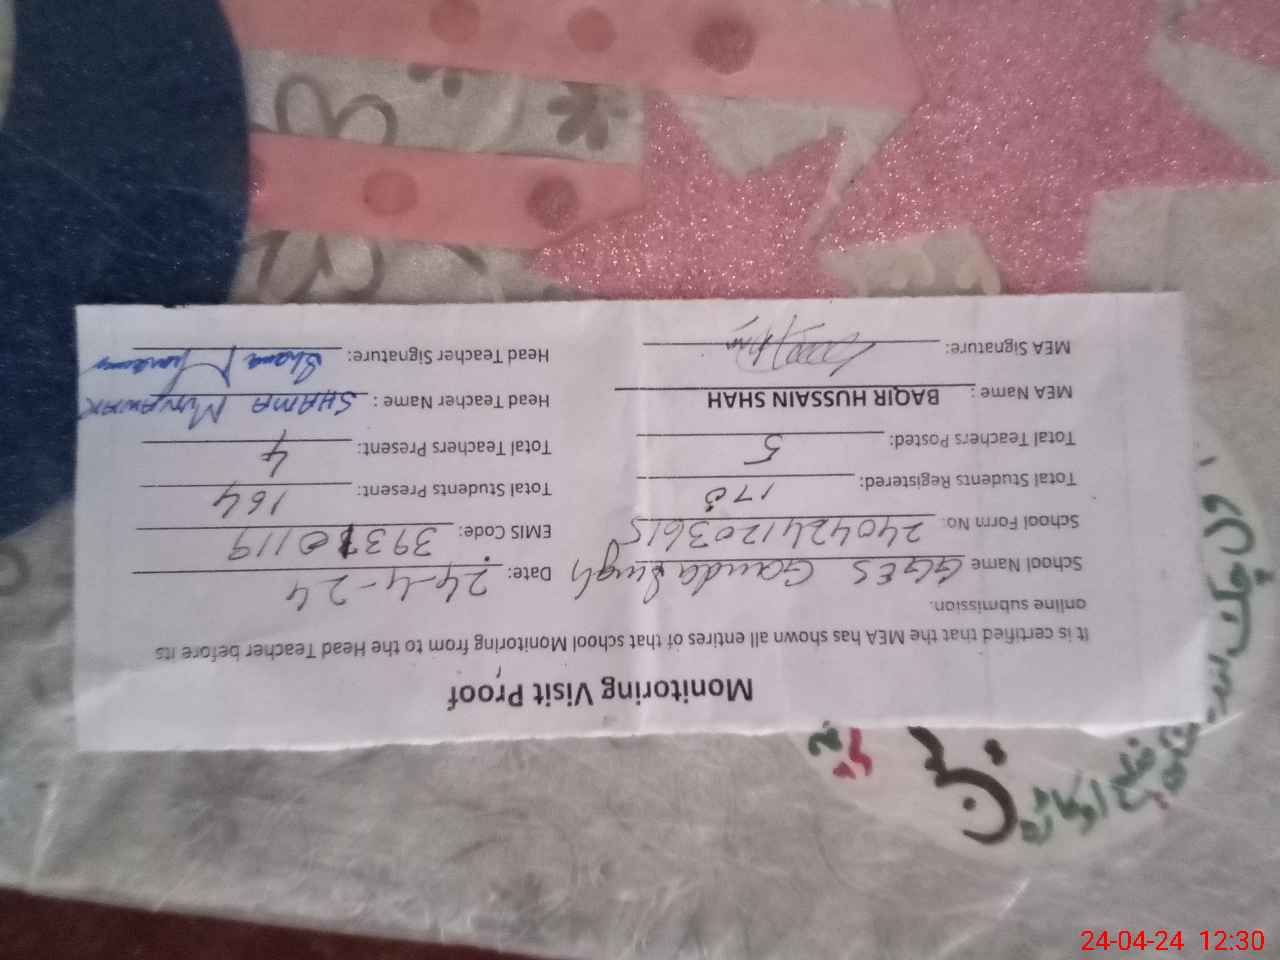 Monitoring Visit Proof
It is certified that the MEA has shown all entires of that school Monitoring from to the Head Teacher before its
online submission.
School Name GGES Ganda Singh Date: 24-4-24
School Form No: 2404241203615 EMIS Code: 39310119
Total Students Registered: 173 Total Students Present: 164
Total Teachers Posted: 5 Total Teachers Present: 4
MEA Name : BAQIR HUSSAIN SHAH Head Teacher Name : SHAMA MUNAWAR
MEA Signature: Head Teacher Signature: Shama Munawar
24-04-24 12:30